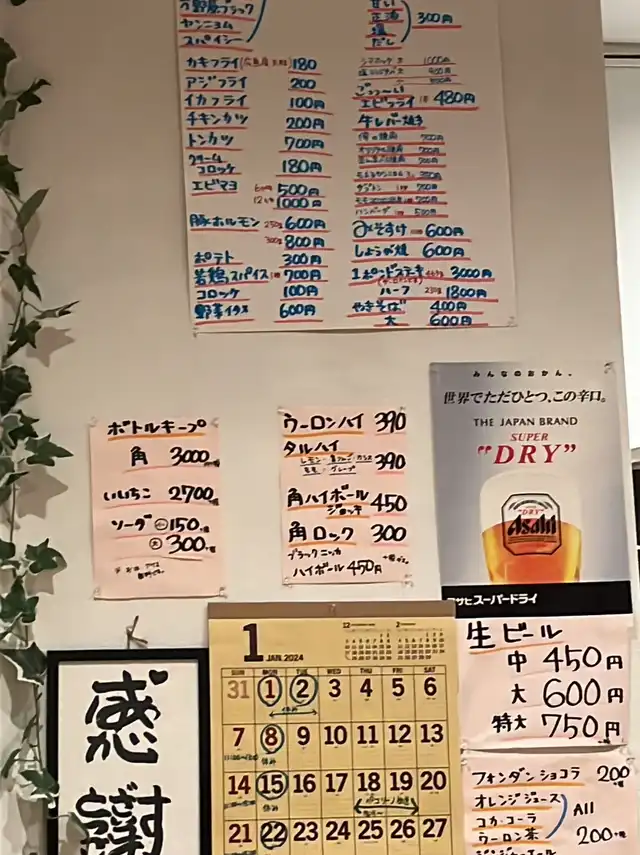 スパイシー
カキフライ 180
アジフライ 200
イカフライ 100円
チキンカツ 200円
トンカツ 700円
クリーム
コロッケ 180円
エビマヨ 500円
1000円
豚ホルモン 250g 600円
300g 800円
ポテト 300円
若鶏スパイス 700円
コロッケ 100円
野菜イタメ 600円
正油
塩
だし
300円
エビフライ 480円
牛レバー焼き
みそすけ 600円
しょうが焼 600円
1ポンドステーキ 3000円
ハーフ 1800円
やきそば 400円
大 600円
ボトルキープ
角 3000
いいちこ 2700
ソーダ 小 150
大 300
ウーロンハイ 390
タルハイ 390
角ハイボール 450
ジョッキ
角ロック 300
ブラックニッカ
ハイボール 450円
みんなのおかん。
世界でただひとつ、この辛口。
THE JAPAN BRAND
SUPER
"DRY"
"DRY"
Asahi
アサヒスーパードライ
生ビール
中 450円
大 600円
特大 750円
フォンダンショコラ 200
オレンジジュース
コカ・コーラ
ウーロン茶
All
200
感
謝
1 JAN. 2024
12 2
SUN MON TUE WED THU FRI SAT
31 1 2 3 4 5 6
休み
7 8 9 10 11 12 13
休み
14 15 16 17 18 19 20
休み
21 22 23 24 25 26 27